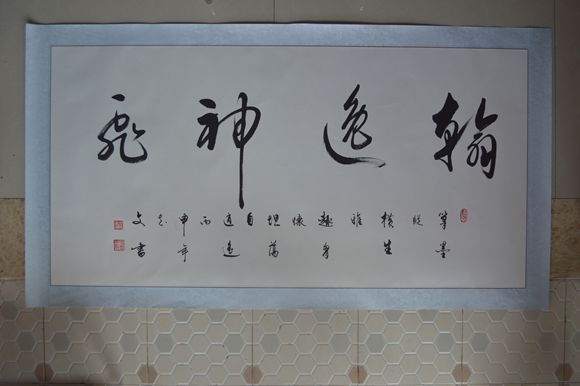 翰逸神飛
筆墨縱橫生雅趣
懷坦蕩自
丙申年
文書